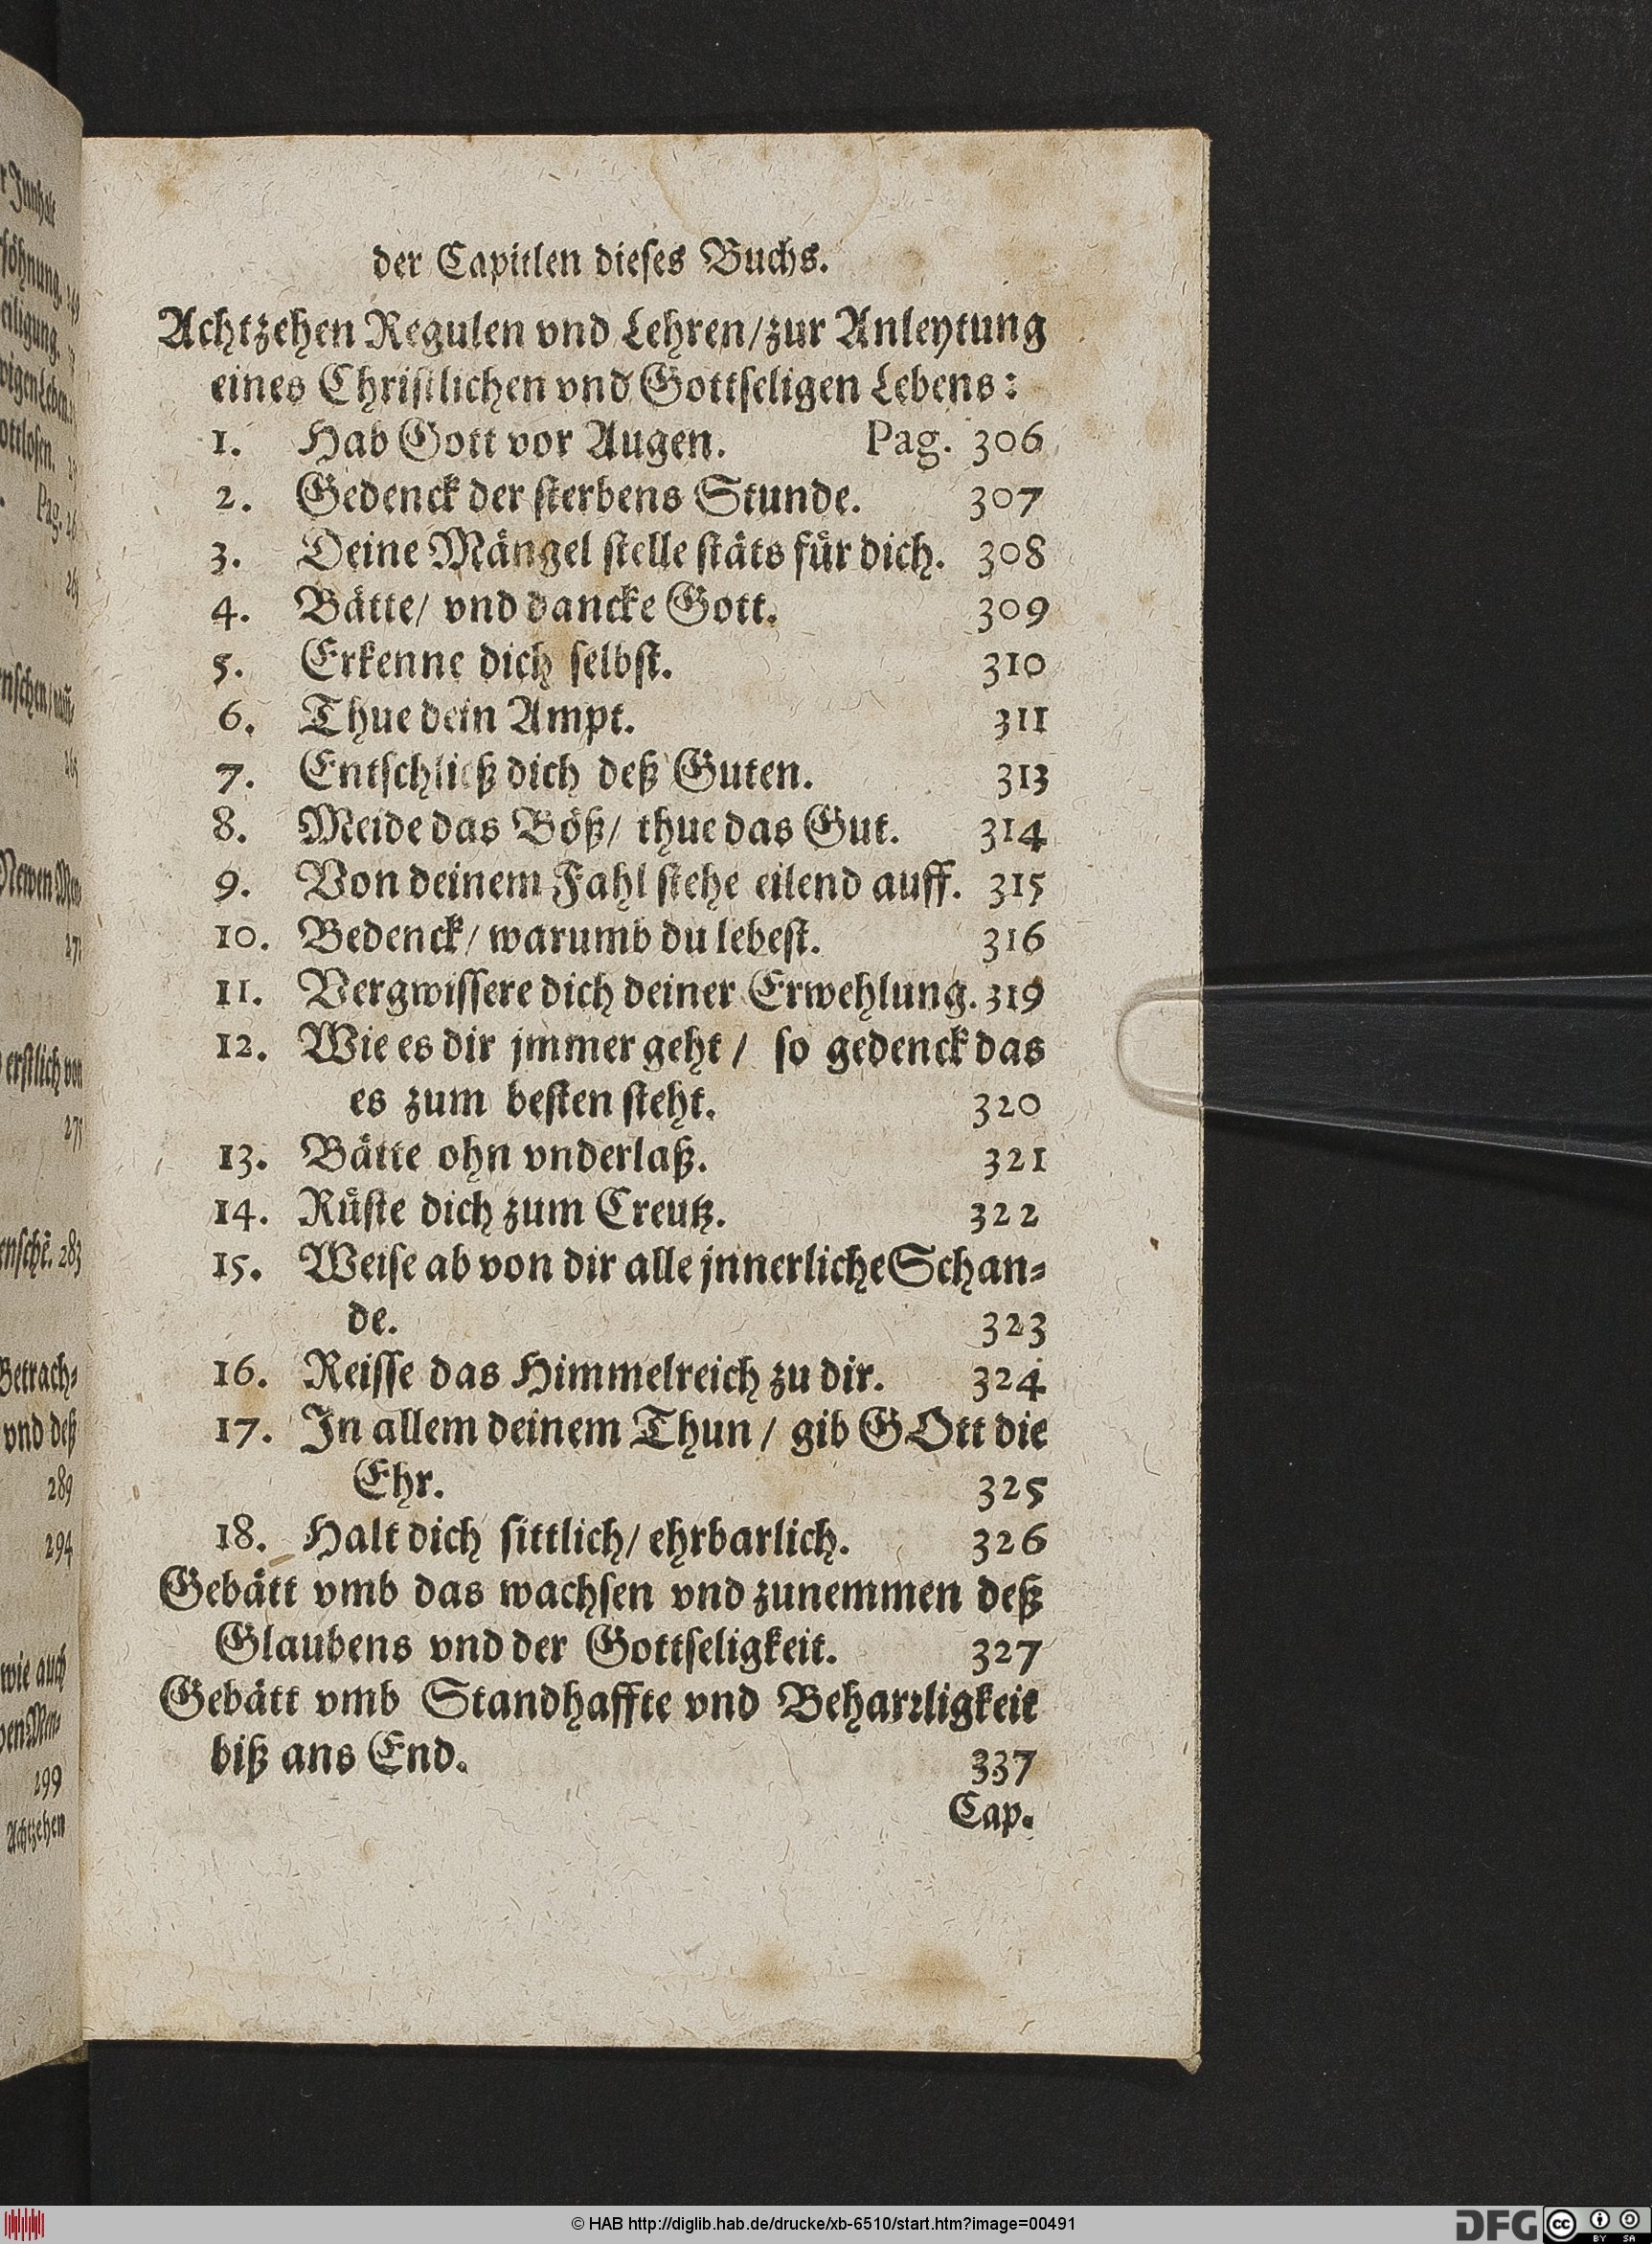 der Capitlen dieses Buchs.
Achtzehen Regulen vnd Lehren/zur Anleytung
eines Christlichen vnd Gottseligen Lebens:
1. Hab Gott vor Augen. Pag. 306
2. Gedenck der sterbens Stunde. 307
3. Deine Mängel stelle stäts für dich. 308
4. Bätte/ vnd dancke Gott. 309
5. Erkenne dich selbst. 310
6. Thue dein Ampt. 311
7. Entschließ dich deß Guten. 313
8. Meide das Böß/ thue das Gut. 314
9. Von deinem Fahl stehe eilend auff. 315
10. Bedenck/ warumb du lebest. 316
11. Vergwissere dich deiner Erwehlung. 319
12. Wie es dir jmmer geht / so gedenck das
es zum besten steht. 320
13. Bätte ohn vnderlaß. 321
14. Rüste dich zum Creutz. 322
15. Weise ab von dir alle jnnerliche Schan-
de. 323
16. Reisse das Himmelreich zu dir. 324
17. In allem deinem Thun / gib GOtt die
Ehr. 325
18. Halt dich sittlich/ ehrbarlich. 326
Gebätt vmb das wachsen vnd zunemmen deß
Glaubens vnd der Gottseligkeit. 327
Gebätt vmb Standhaffte vnd Beharrligkeit
biß ans End. 337
Cap.
Pag.
erstlich von
283
Betrach-
vnd deß
289
294
wie auch
299
Achtzehen
© HAB http://diglib.hab.de/drucke/xb-6510/start.htm?image=00491
DFG
cc
BY SA